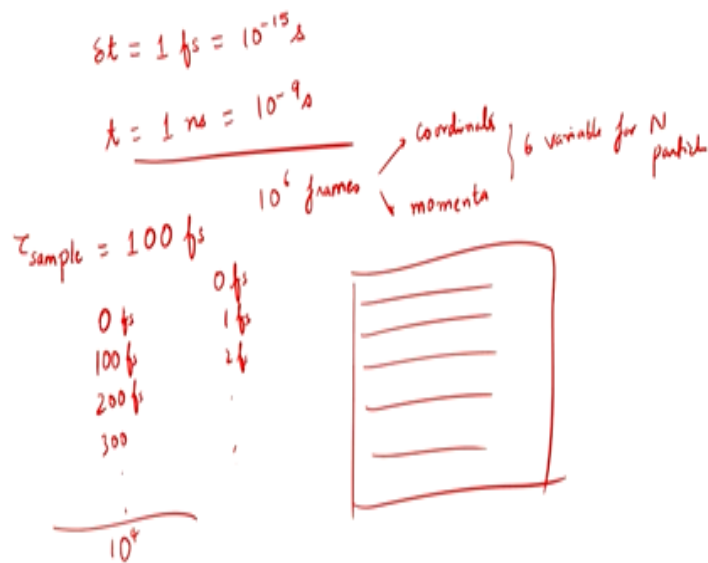 δt = 1 fs = 10⁻¹⁵ s
t = 1 ns = 10⁻⁹ s
10⁶ frames
coordinates
momenta
6 variable for N
particle
τsample = 100 fs
0 fs
100 fs
200 fs
300
.
.
10⁴
0 fs
1 fs
2 fs
.
.